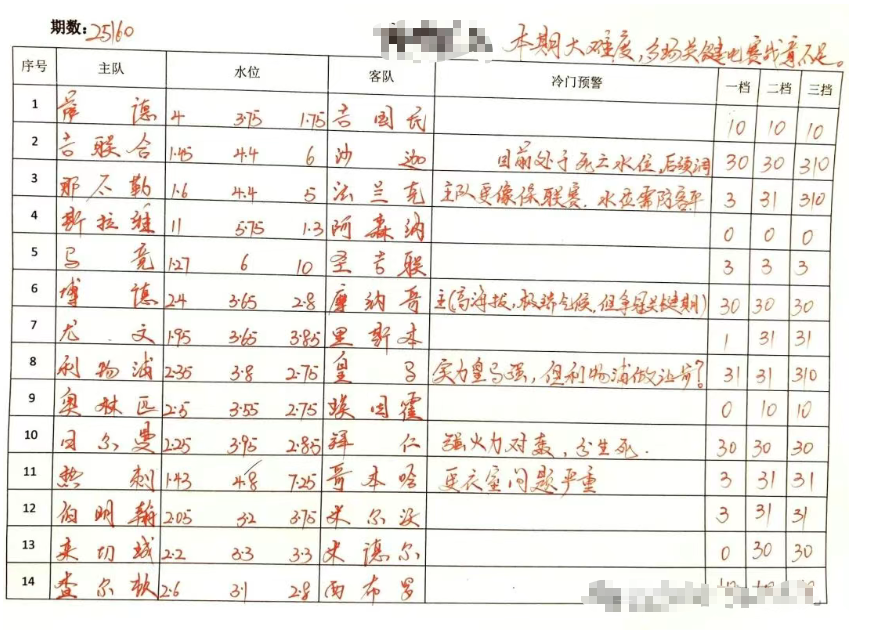 期数: 25160
本期大难度，多场关键比赛我意不足。
序号 主队 水位 客队 冷门预警 一档 二档 三挡
1 萨德 4 3.75 1.75 吉国民 10 10 10
2 吉联合 1.45 4.4 6 沙迦 目前处于死亡水位，后须调 30 30 310
3 那不勒 1.6 4.4 5 法兰克 主队更像保联赛.水位需防客平 3 31 310
4 斯拉维 11 5.75 1.3 阿森纳 0 0 0
5 马竞 1.27 6 10 圣吉联 3 3 3
6 博德 2.4 3.65 2.8 摩纳哥 主(高海拔,极端气候,但争冠关键期) 30 30 30
7 尤文 1.95 3.65 3.85 里斯本 1 31 31
8 利物浦 2.35 3.8 2.75 皇马 实力皇马强，但利物浦做让步? 31 31 310
9 奥林匹 2.5 3.55 2.75 埃因霍 0 10 10
10 日尔曼 2.25 3.95 2.85 拜仁 强火力对轰，分生死. 30 30 30
11 热刺 1.43 4.8 7.25 哥本哈 更衣室问题严重 3 31 31
12 伯明翰 2.05 3.2 3.75 米尔沃 3 31 31
13 莱切城 2.2 3.3 3.3 米德尔 0 30 30
14 查尔顿 2.6 3.1 2.8 西布罗